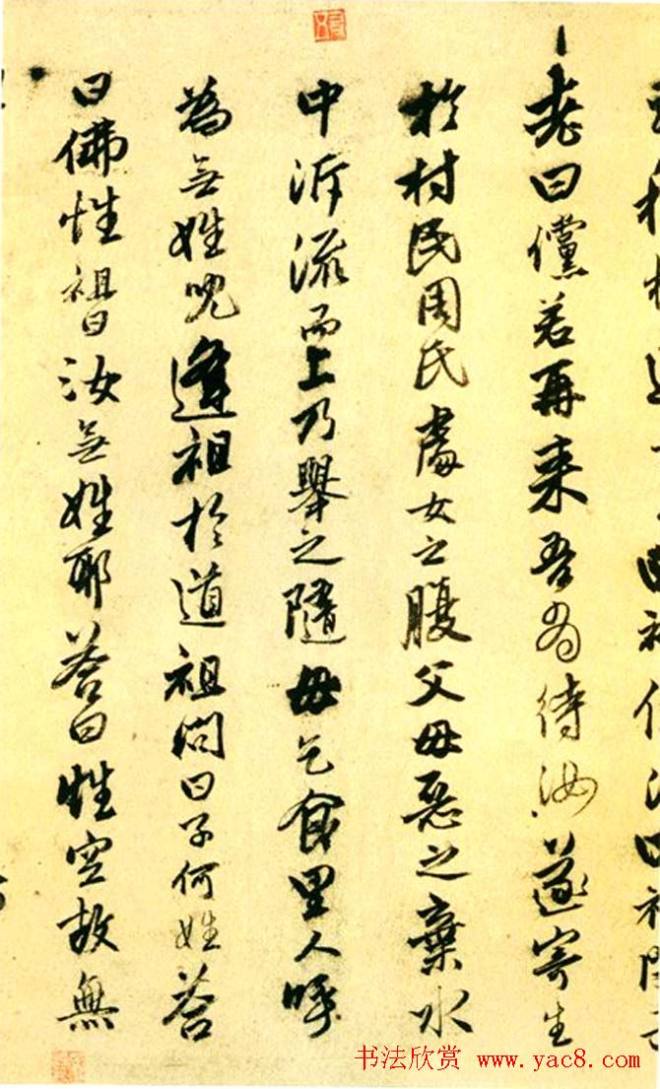 老曰儻若再来吾为待汝遂寄生
於村民周氏處女之腹父母惡之棄水
中泝流而上乃舉之隨母乞食里人呼
為无姓児逢祖於道祖問曰子何姓答
曰佛性祖曰汝无姓耶答曰性空故無
书法欣赏 www.yac8.com